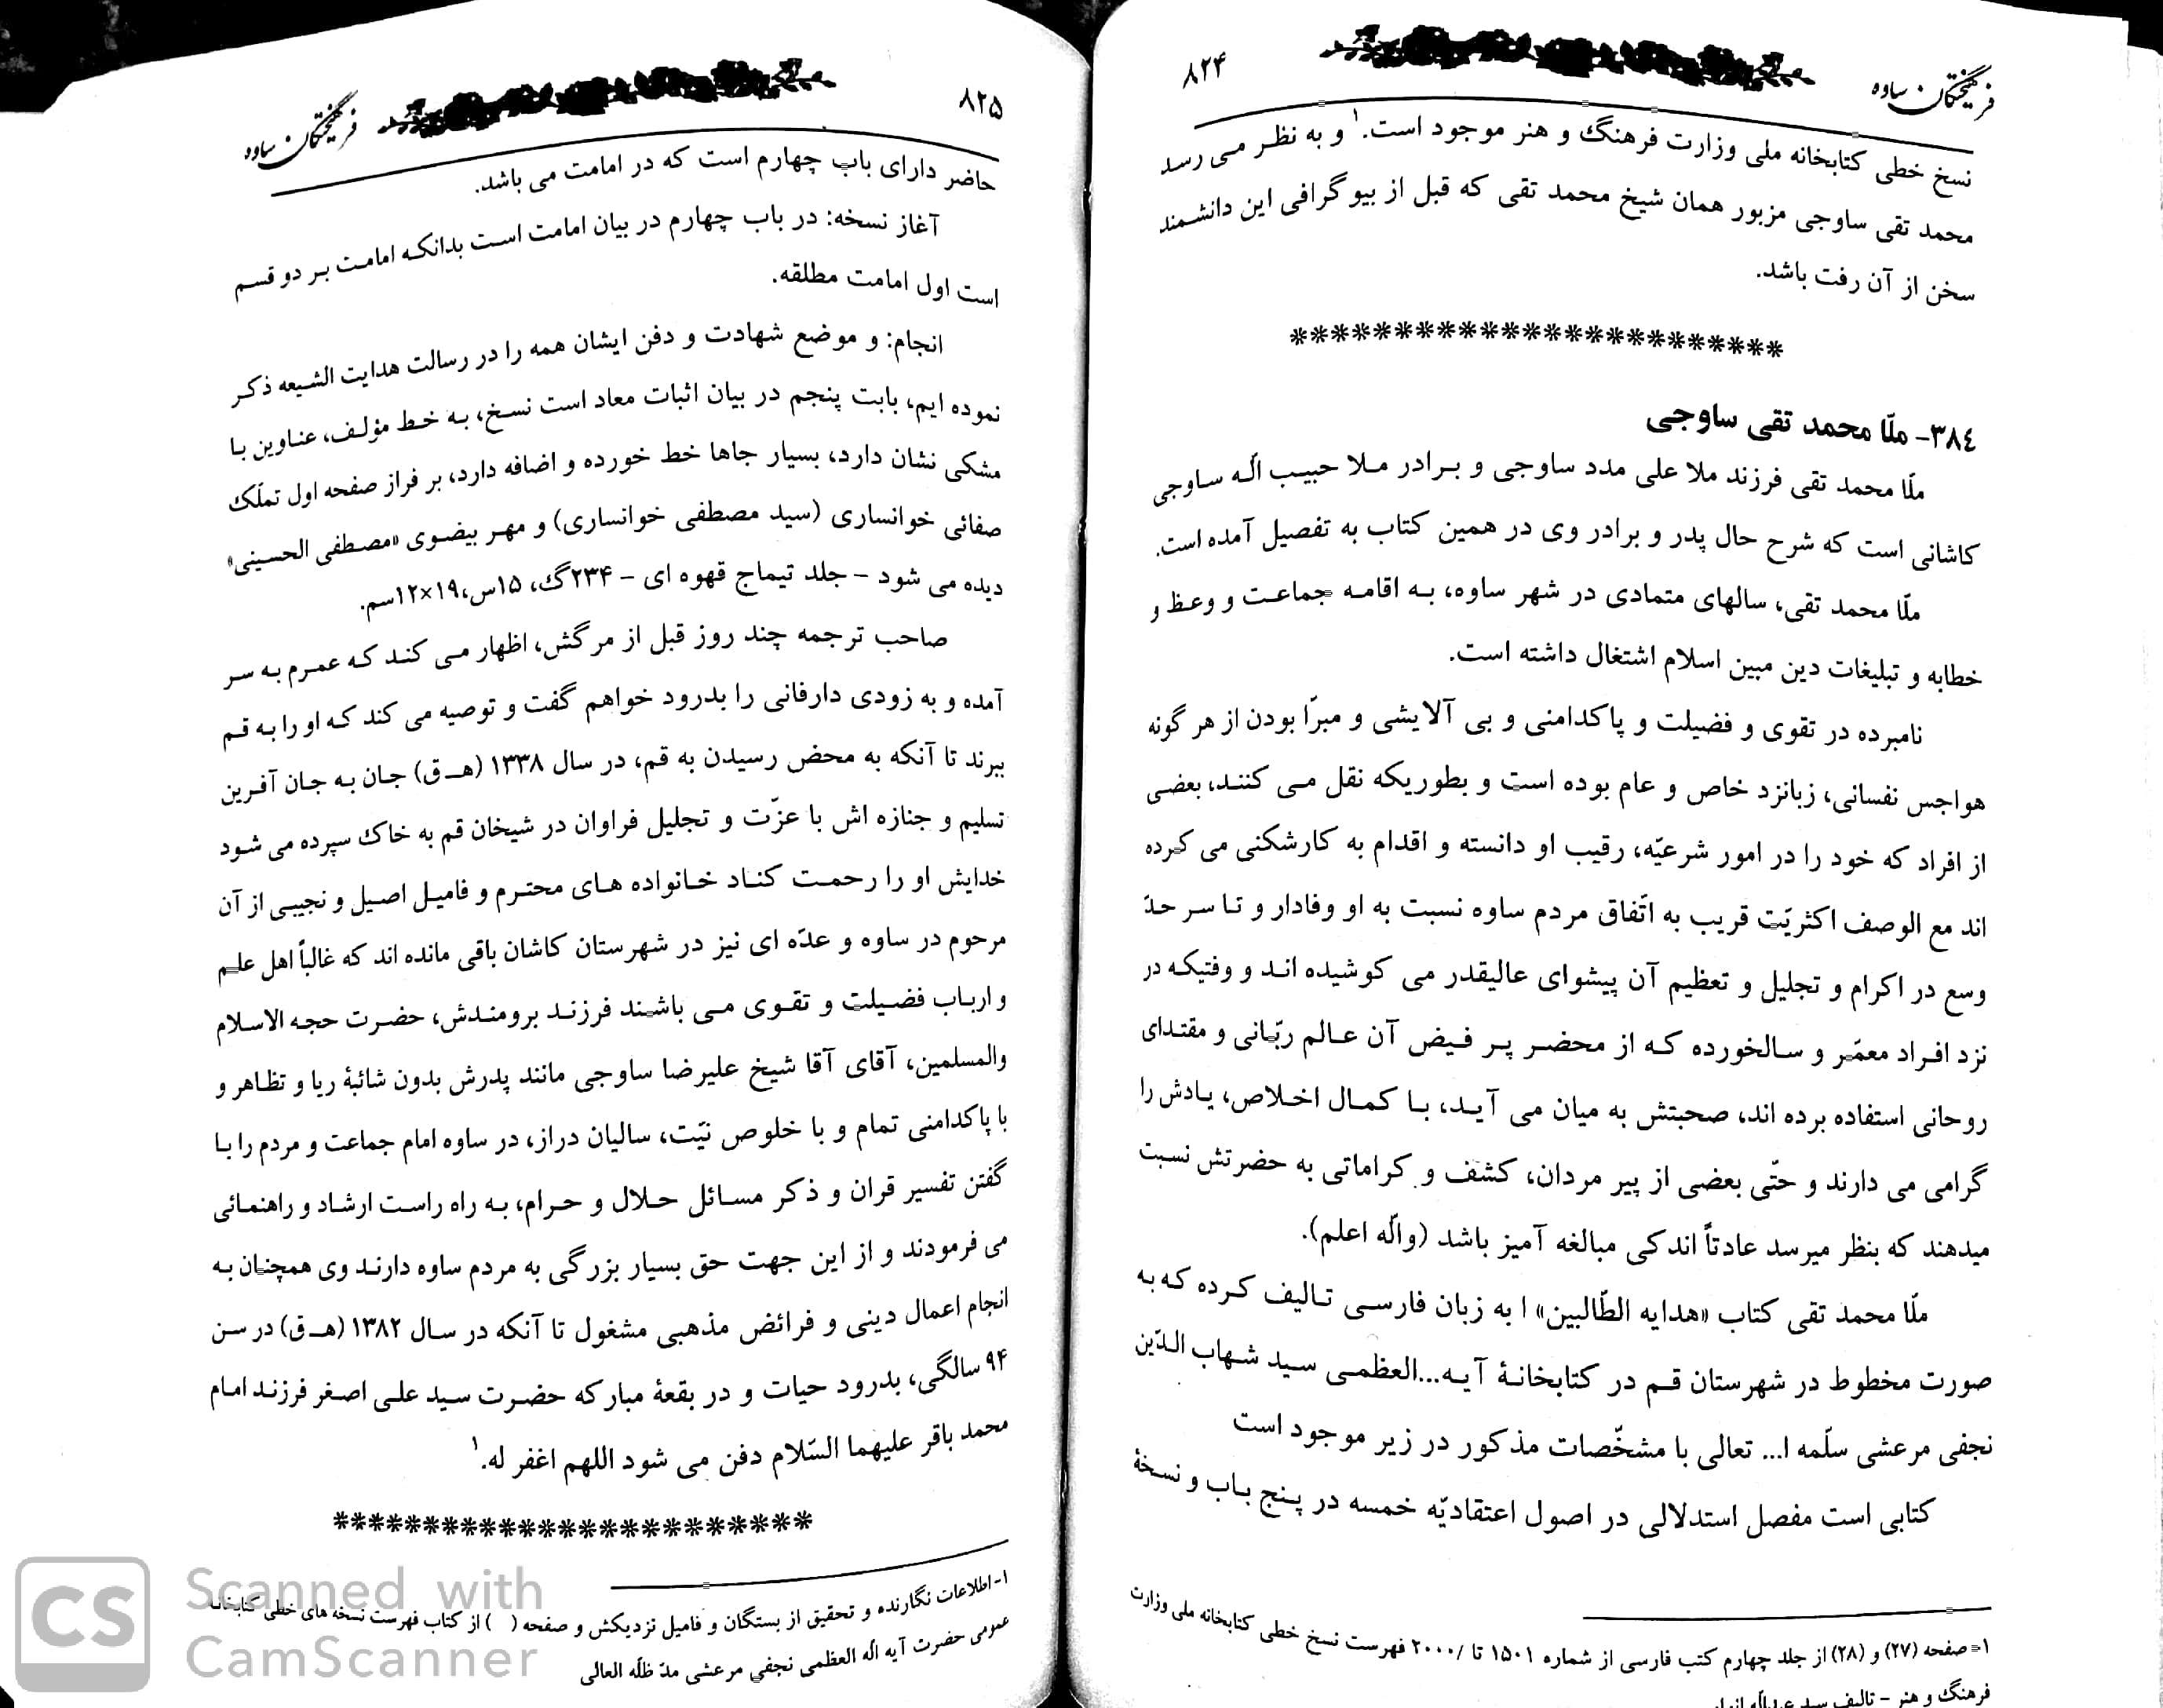 ۸۲۴
فرهیختگان ساوه
نسخ خطی کتابخانه ملی وزارت فرهنگ و هنر موجود است.۱ و به نظر می رسد
محمد تقی ساوجی مزبور همان شیخ محمد تقی که قبل از بیوگرافی این دانشمند
سخن از آن رفت باشد.
***********************
۳۸۴- ملّا محمد تقی ساوجی
ملّا محمد تقی فرزند ملا علی مدد ساوجی و برادر ملا حبیب اله ساوجی
کاشانی است که شرح حال پدر و برادر وی در همین کتاب به تفصیل آمده است.
ملّا محمد تقی، سالهای متمادی در شهر ساوه، به اقامه جماعت و وعظ و
خطابه و تبلیغات دین مبین اسلام اشتغال داشته است.
نامبرده در تقوی و فضیلت و پاکدامنی و بی آلایشی و مبرّا بودن از هر گونه
هواجس نفسانی، زبانزد خاص و عام بوده است و بطوریکه نقل می کنند، بعضی
از افراد که خود را در امور شرعیّه، رقیب او دانسته و اقدام به کارشکنی می کرده
اند مع الوصف اکثریّت قریب به اتّفاق مردم ساوه نسبت به او وفادار و تا سر حدّ
وسع در اکرام و تجلیل و تعظیم آن پیشوای عالیقدر می کوشیده اند و وفتیکه در
نزد افراد معمّر و سالخورده که از محضر پر فیض آن عالم ربّانی و مقتدای
روحانی استفاده برده اند، صحبتش به میان می آید، با کمال اخلاص، یادش را
گرامی می دارند و حتّی بعضی از پیر مردان، کشف و کراماتی به حضرتش نسبت
میدهند که بنظر میرسد عادتاً اندکی مبالغه آمیز باشد (والّه اعلم).
ملّا محمد تقی کتاب «هدایه الطّالبین» ا به زبان فارسی تالیف کرده که به
صورت مخطوط در شهرستان قم در کتابخانهٔ آیه...العظمی سید شهاب الدّین
نجفی مرعشی سلّمه ا... تعالی با مشخّصات مذکور در زیر موجود است
کتابی است مفصل استدلالی در اصول اعتقادیّه خمسه در پنج باب و نسخهٔ
۱- صفحه (۲۷) و (۲۸) از جلد چهارم کتب فارسی از شماره ۱۵۰۱ تا /۲۰۰۰ فهرست نسخ خطی کتابخانه ملی وزارت
فرهنگ و هنر – تالیف سید عبداله انوار
۸۲۵
فرهیختگان ساوه
حاضر دارای باب چهارم است که در امامت می باشد.
آغاز نسخه: در باب چهارم در بیان امامت است بدانکه امامت بر دو قسم
است اول امامت مطلقه.
انجام: و موضع شهادت و دفن ایشان همه را در رسالت هدایت الشیعه ذکر
نموده ایم، بابت پنجم در بیان اثبات معاد است نسخ، به خط مؤلف، عناوین با
مشکی نشان دارد، بسیار جاها خط خورده و اضافه دارد، بر فراز صفحه اول تملّک
صفائی خوانساری (سید مصطفی خوانساری) و مهر بیضوی «مصطفی الحسینی»
دیده می شود – جلد تیماج قهوه ای – ۲۳۴گ، ۱۵س،۱۹×۱۲سم.
صاحب ترجمه چند روز قبل از مرگش، اظهار می کند که عمرم به سر
آمده و به زودی دارفانی را بدرود خواهم گفت و توصیه می کند که او را به قم
ببرند تا آنکه به محض رسیدن به قم، در سال ۱۳۳۸ (هـ ق) جان به جان آفرین
تسلیم و جنازه اش با عزّت و تجلیل فراوان در شیخان قم به خاک سپرده می شود
خدایش او را رحمت کناد خانواده های محترم و فامیل اصیل و نجیبی از آن
مرحوم در ساوه و عدّه ای نیز در شهرستان کاشان باقی مانده اند که غالباً اهل علم
و ارباب فضیلت و تقوی می باشند فرزند برومندش، حضرت حجه الاسلام
والمسلمین، آقای آقا شیخ علیرضا ساوجی مانند پدرش بدون شائبهٔ ریا و تظاهر و
با پاکدامنی تمام و با خلوص نیّت، سالیان دراز، در ساوه امام جماعت و مردم را با
گفتن تفسیر قران و ذکر مسائل حلال و حرام، به راه راست ارشاد و راهنمائی
می فرمودند و از این جهت حق بسیار بزرگی به مردم ساوه دارند وی همچنان به
انجام اعمال دینی و فرائض مذهبی مشغول تا آنکه در سال ۱۳۸۲ (هـ ق) در سن
۹۴ سالگی، بدرود حیات و در بقعهٔ مبارکه حضرت سید علی اصغر فرزند امام
محمد باقر علیهما السّلام دفن می شود اللهم اغفر له.۱
***************************
۱- اطلاعات نگارنده و تحقیق از بستگان و فامیل نزدیکش و صفحه ( ) از کتاب فهرست نسخه های خطی کتابخانه
عمومی حضرت آیه اله العظمی نجفی مرعشی مدّ ظلّه العالی
CS Scanned with
CamScanner